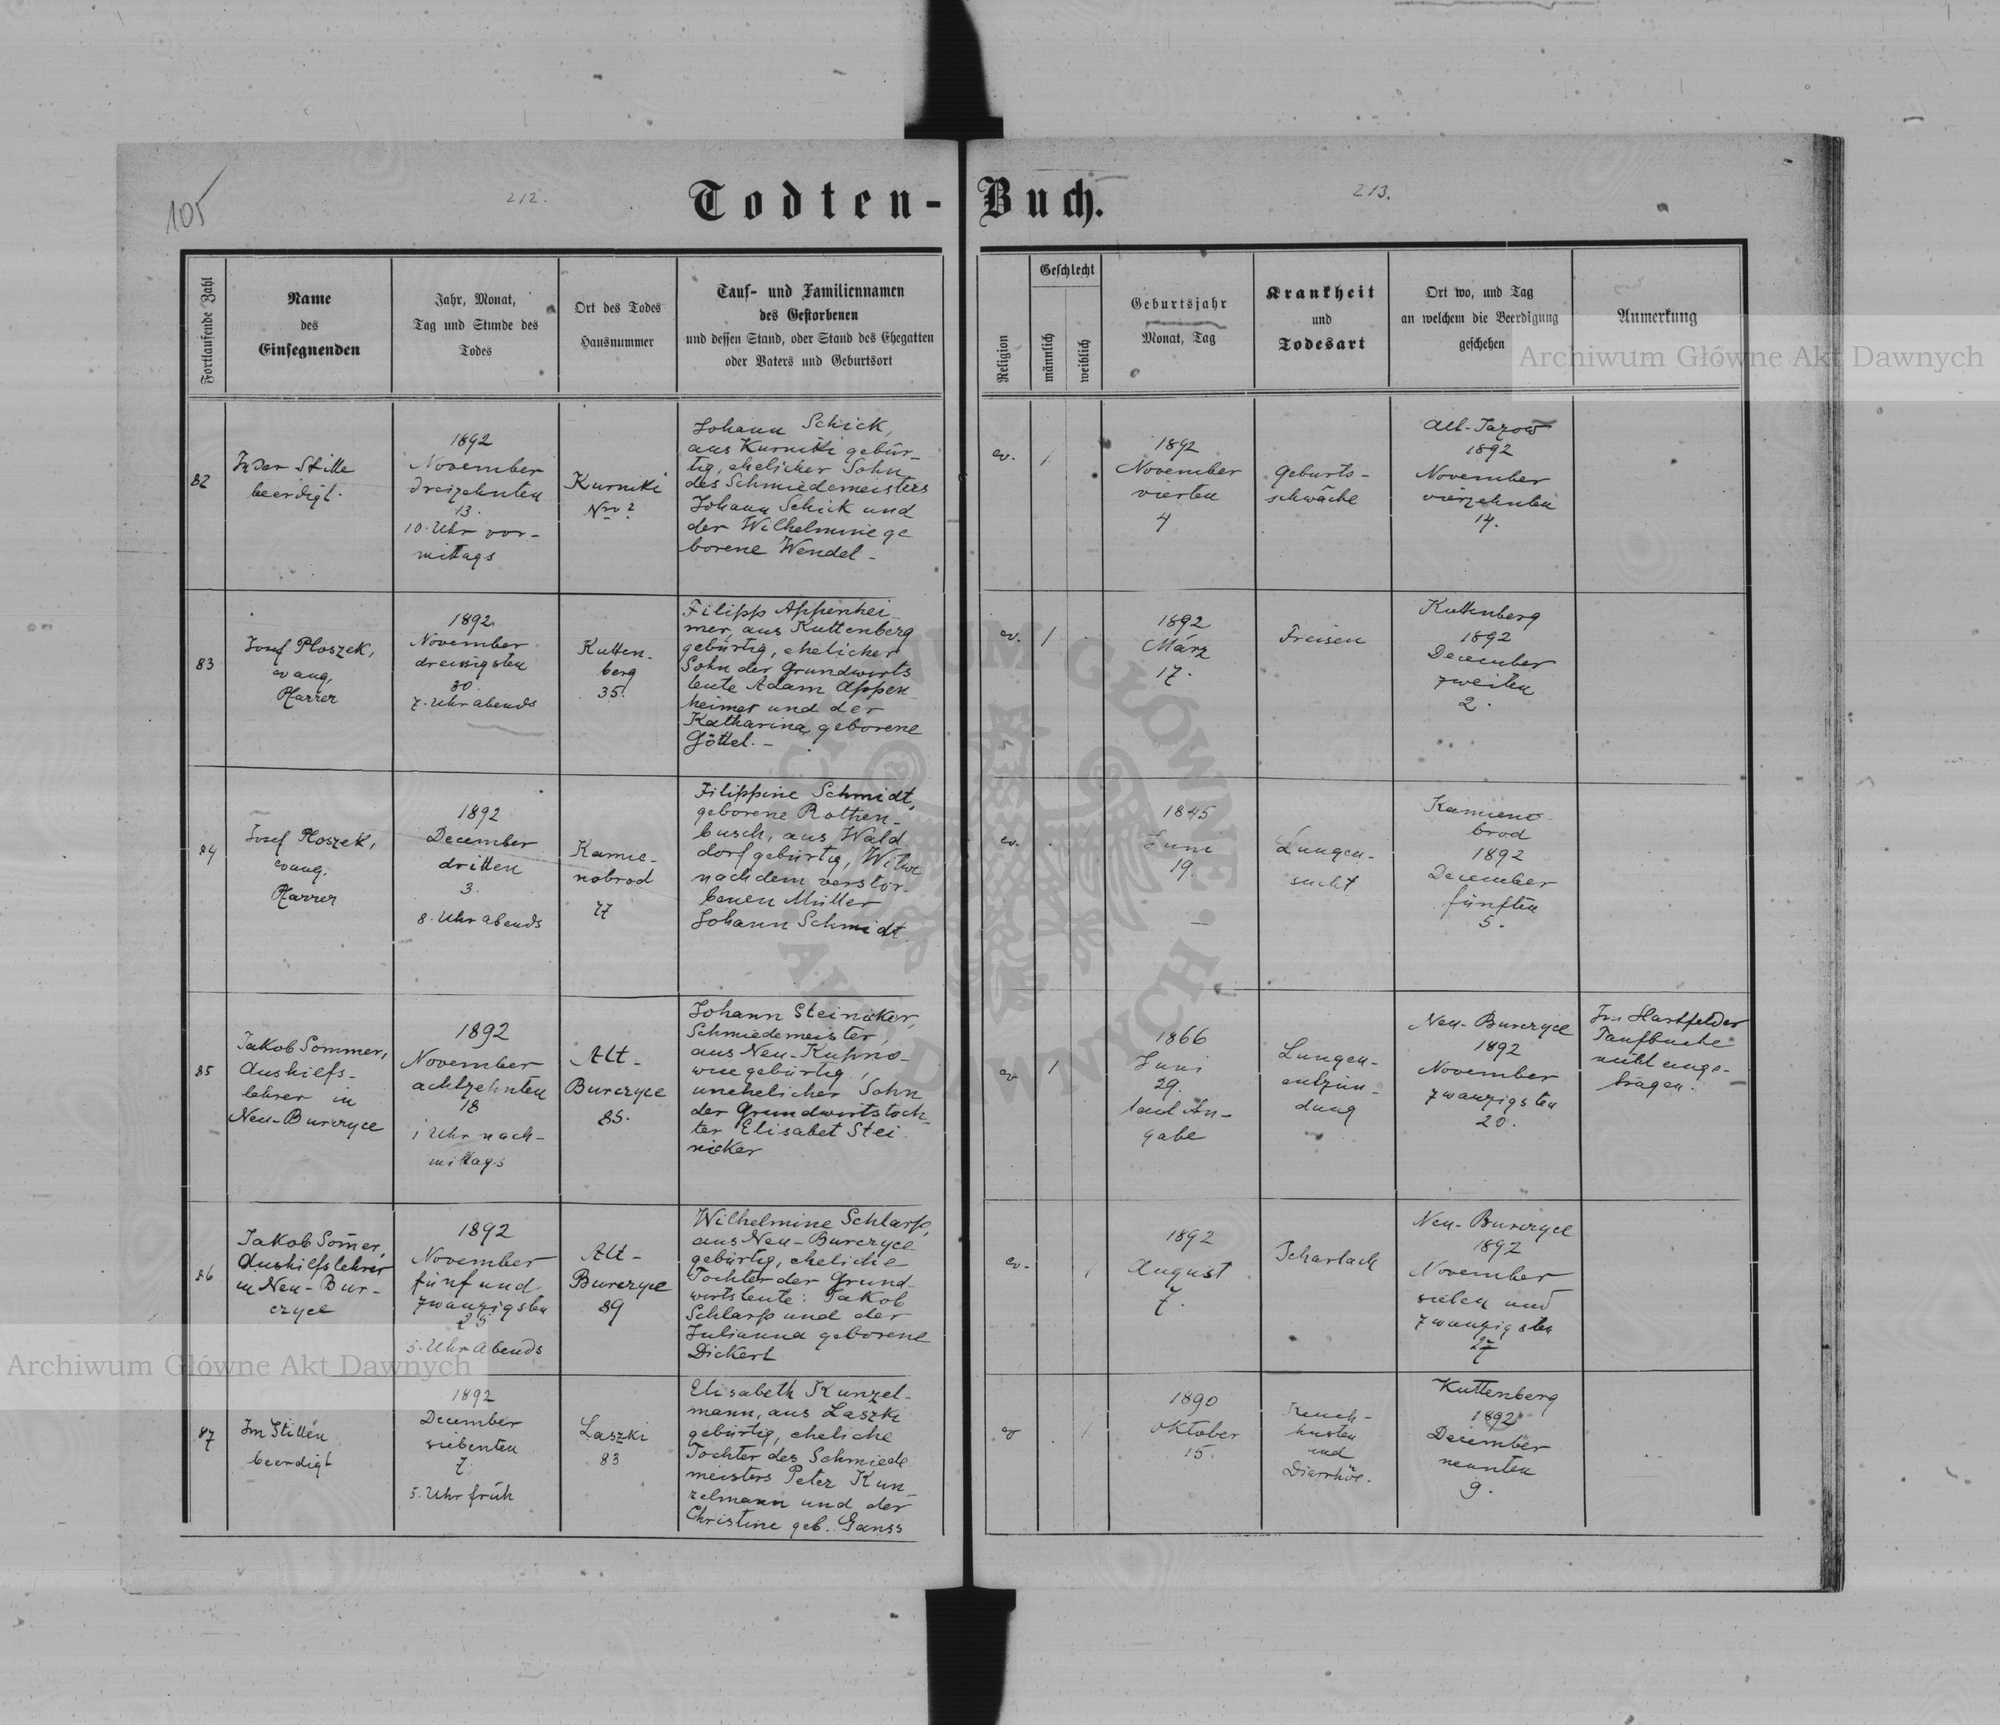 105
212.
Todten-Buch.
213.
Fortlaufende Zahl
Name
des
Einsegnenden
Jahr, Monat,
Tag und Stunde des
Todes
Ort des Todes
Hausnummer
Tauf- und Familiennamen
des Gestorbenen
und dessen Stand, oder Stand des Ehegatten
oder Vaters und Geburtsort
Religion
Geschlecht
männlich
weiblich
Geburtsjahr
Monat, Tag
Krankheit
und
Todesart
Ort wo, und Tag
an welchem die Beerdigung
geschehen
Anmerkung
82
In der Stille
beerdigt.
1892
November
dreizehnten
13.
10. Uhr vor-
mittags
Kurniki
Nro 2
Johann Schick,
aus Kurniki gebür-
tig, ehelicher Sohn
des Schmiedemeisters
Johann Schick und
der Wilhelmine ge
borene Wendel -
ev.
1
1892
November
vierten
4
Geburts-
schwäche
Alt-Jazow
1892
November
vierzehnten
14.
83
Josef Ploszek,
evang.
Pfarrer
1892
November
dreissigsten
30.
7. Uhr abends
Kutten-
berg
35.
Filipp Appenhei
mer, aus Kuttenberg
gebürtig, ehelicher
Sohn der Grundwirts
leute Adam Appen
heimer und der
Katharina geborene
Göttel. -
ev.
1
1892
März
17.
Freisen
Kuttenberg
1892
December
zweiten
2.
84
Josef Ploszek,
evang.
Pfarrer
1892
December
dritten
3.
8. Uhr abends
Kamie-
nobrod
77
Filippine Schmidt,
geborene Rothen-
busch, aus Wald
dorf gebürtig, Witwe
nach dem verstor-
benen Müller
Johann Schmidt.
ev.
1
1845
Juni
19.
Lungen-
sucht
Kamieno-
brod
1892
December
fünften
5.
85
Jakob Sommer,
Aushilfs-
lehrer in
Neu-Burczyce
1892
November
achtzehnten
18
1 Uhr nach-
mittags
Alt-
Burczyce
85.
Johann Steinicker,
Schmiedemeister,
aus Neu-Kupno-
wice gebürtig,
unehelicher Sohn
der Grundwirtstoch-
ter Elisabet Stei
nicker
ev
1
1866
Juni
29.
laut An-
gabe
Lungen-
entzün-
dung
Neu-Burczyce
1892
November
zwanzigsten
20.
Im Hartfelder
Taufbuche
nicht einge-
tragen.
86
Jakob Som̄er,
Aushilfslehrer
in Neu-Bur-
czyce
1892
November
fünf und
zwanzigsten
25
5. Uhr Abends
Alt-
Burczyce
89
Wilhelmine Schlarp,
aus Neu-Burczyce
gebürtig, eheliche
Tochter der Grund-
wirtsleute: Jakob
Schlarp und der
Julianna geborene
Dickert
ev.
1
1892
August
7.
Scharlach
Neu-Burczyce
1892
November
sieben und
zwanzigsten
27
87
Im Stillen
beerdigt
1892
December
siebenten
7
5. Uhr früh
Laszki
83
Elisabeth Kunzel-
mann, aus Laszki
gebürtig, eheliche
Tochter des Schmiede
meisters Peter Kun-
zelmann und der
Christine geb. Ganss
ev
1
1890
Oktober
15.
Keuch-
husten
und
Diarrhöe.
Kuttenberg
1892
December
neunten
9.
Archiwum Główne Akt Dawnych
Archiwum Główne Akt Dawnych
ARCHIWUM GŁÓWNE · AKT DAWNYCH ·